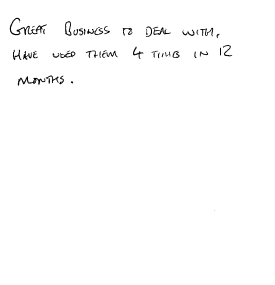 GREAT BUSINESS TO DEAL WITH,
HAVE USED THEM 4 TIMES IN 12
MONTHS.